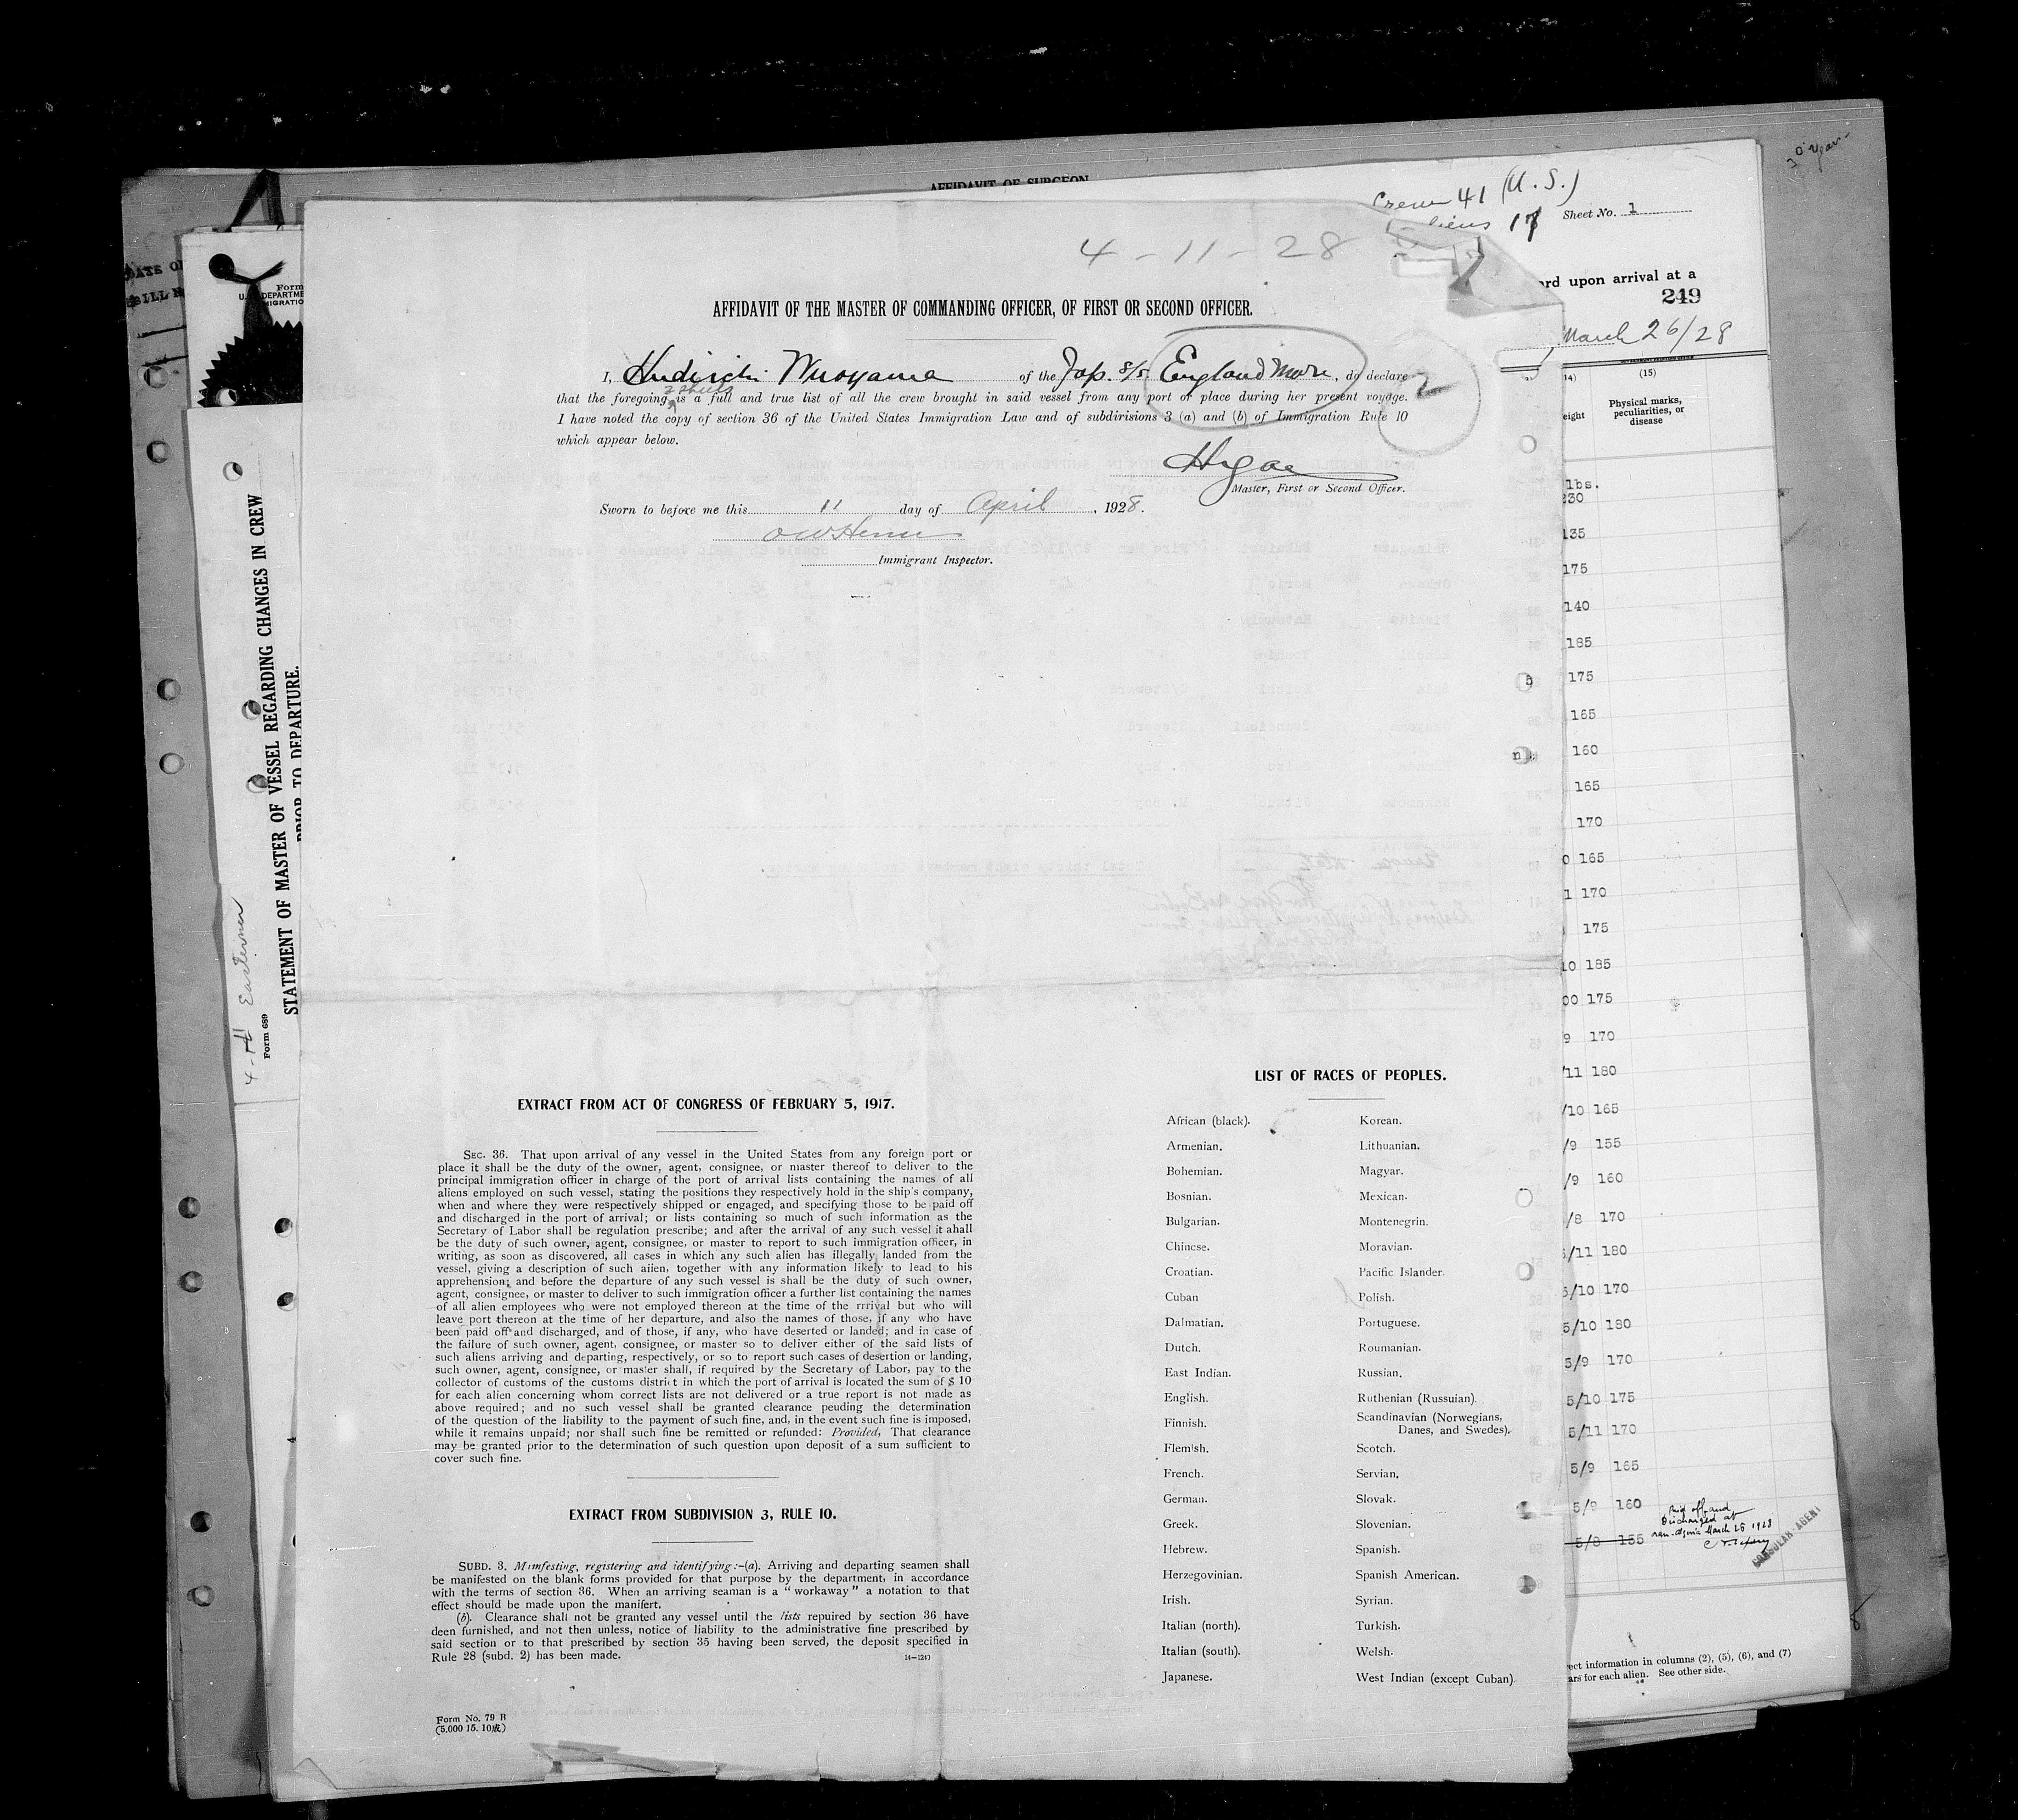 AFFIDAVIT OF SURGEON
Crew 41 (U. S.)
Sheet No. 1
4-11-28
ard upon arrival at a
249
March 26/28
AFFIDAVIT OF THE MASTER OF COMMANDING OFFICER, OF FIRST OR SECOND OFFICER.
I, of the Jap. S/S. England Maru, do declare
2 sheets
that the foregoing is a full and true list of all the crew brought in said vessel from any port or place during her present voyage.
I have noted the copy of section 36 of the United States Immigration Law and of subdirisions 3 (a) and (b) of Immigration Rule 10
which appear below.
2
Master, First or Second Officer.
Sworn to before me this 11 day of April, 1928.
Immigrant Inspector.
EXTRACT FROM ACT OF CONGRESS OF FEBRUARY 5, 1917.
SEC. 36. That upon arrival of any vessel in the United States from any foreign port or
place it shall be the duty of the owner, agent, consignee, or master thereof to deliver to the
principal immigration officer in charge of the port of arrival lists containing the names of all
aliens employed on such vessel, stating the positions they respectively hold in the ship's company,
when and where they were respectively shipped or engaged, and specifying those to be paid off
and discharged in the port of arrival; or lists containing so much of such information as the
Secretary of Labor shall be regulation prescribe; and after the arrival of any such vessel it ahall
be the duty of such owner, agent, consignee, or master to report to such immigration officer, in
writing, as soon as discovered, all cases in which any such alien has illegally landed from the
vessel, giving a description of such aiien, together with any information likely to lead to his
apprehension; and before the departure of any such vessel is shall be the duty of such owner,
agent, consignee, or master to deliver to such immigration officer a further list containing the names
of all alien employees who were not employed thereon at the time of the rrrival but who will
leave port thereon at the time of her departure, and also the names of those, if any who have
been paid off and discharged, and of those, if any, who have deserted or landed; and in case of
the failure of such owner, agent, consignee, or master so to deliver either of the said lists of
such aliens arriving and departing, respectively, or so to report such cases of desertion or landing,
such owner, agent, consignee, or master shall, if required by the Secretary of Labor, pay to the
collector of customs of the customs district in which the port of arrival is located the sum of $ 10
for each alien concerning whom correct lists are not delivered or a true report is not made as
above required; and no such vessel shall be granted clearance peuding the determination
of the question of the liability to the payment of such fine, and, in the event such fine is imposed,
while it remains unpaid; nor shall such fine be remitted or refunded: Provided, That clearance
may be granted prior to the determination of such question upon deposit of a sum sufficient to
cover such fine.
EXTRACT FROM SUBDIVISION 3, RULE 10.
SUBD. 3. Mimfesting, registering and identifying:-(a). Arriving and departing seamen shall
be manifested on the blank forms provided for that purpose by the department, in accordance
with the terms of section 36. When an arriving seaman is a "workaway" a notation to that
effect should be made upon the manifert.
(b). Clearance shall not be granted any vessel until the lists repuired by section 36 have
deen furnished, and not then unless, notice of liability to the administrative fine prescribed by
said section or to that prescribed by section 35 having been served, the deposit specified in
Rule 28 (subd. 2) has been made.
Form No. 79 B
(5.000 15. 10成)
LIST OF RACES OF PEOPLES.
African (black). Korean.
Armenian. Lithuanian.
Bohemian. Magyar.
Bosnian. Mexican.
Bulgarian. Montenegrin.
Chinese. Moravian.
Croatian. Pacific Islander.
Cuban Polish.
Dalmatian. Portuguese.
Dutch. Roumanian.
East Indian. Russian.
English. Ruthenian (Russuian).
Finnish. Scandinavian (Norwegians,
Danes, and Swedes).
Flemish. Scotch.
French. Servian.
German. Slovak.
Greek. Slovenian.
Hebrew. Spanish.
Herzegovinian. Spanish American.
Irish. Syrian.
Italian (north). Turkish.
Italian (south). Welsh.
Japanese. West Indian (except Cuban).
STATEMENT OF MASTER OF VESSEL REGARDING CHANGES IN CREW
PRIOR TO DEPARTURE.
Form 689
4-H Easterner
(14) (15)
Physical marks,
peculiarities, or
disease
lbs.
230
135
175
140
185
175
165
160
165
170
165
170
175
10 185
00 175
9 170
/11 180
/10 165
/9 155
/9 160
/8 170
5/11 180
5/10 170
5/10 180
5/9 170
5/10 175
5/11 170
5/9 165
5/9 160
5/8 155
CONSULAR AGENT
rect information in columns (2), (5), (6), and (7)
ars for each alien. See other side.